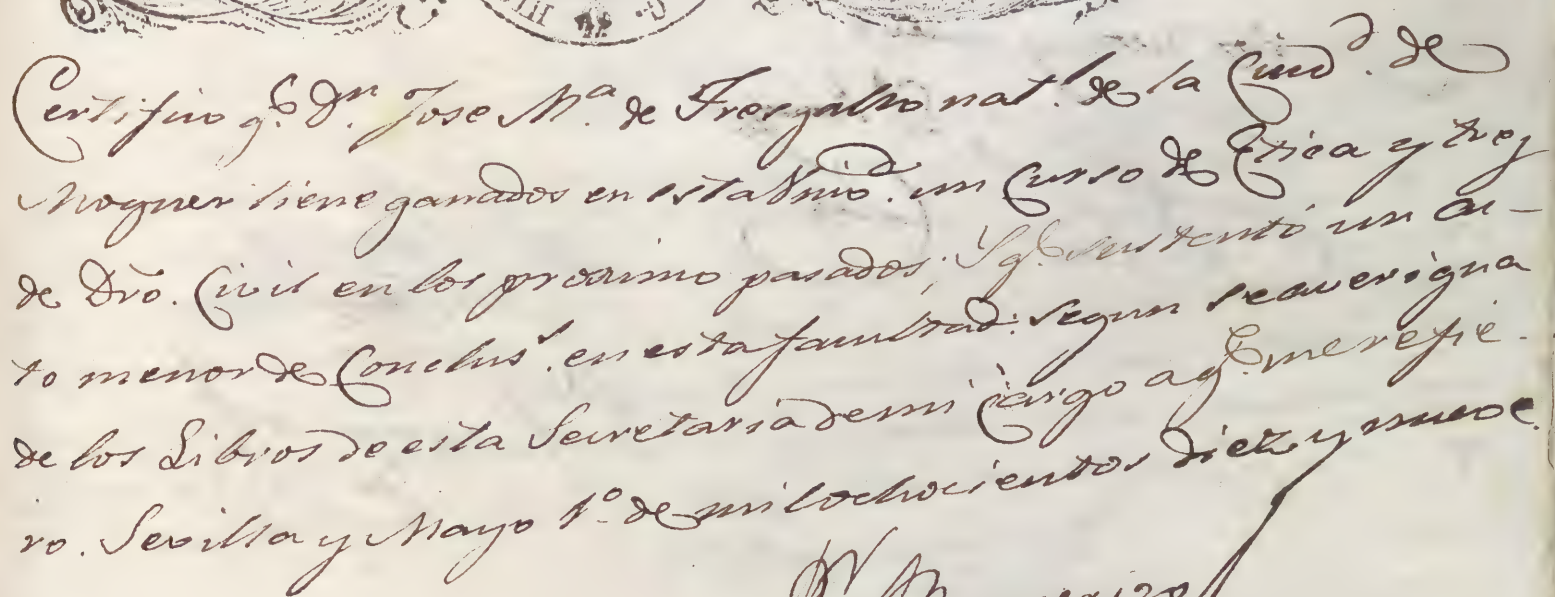 Certifico q.e D.n Jose M.a de Fresgallo nat.l de la Ciud.d de
Moguer tiene ganados en esta Univ.d un Curso de Etica y tres
de Dro. Civil en los proximo pasados; Y q.e sustentó un ac-
to menor de Conclus.s en esta facultad: segun se averigua
de los Libros de esta Secretaría de mi cargo a q.e me refie-
ro. Sevilla y Mayo 1.o de mil ochocientos diez y nueve.